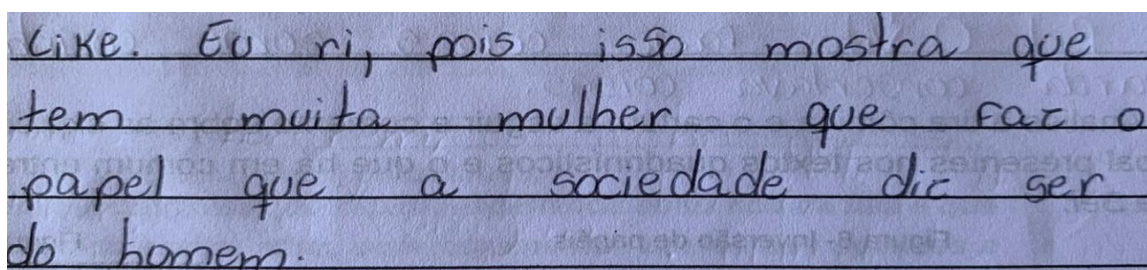 Like. Eu ri, pois isso mostra que
tem muita mulher que faz o
papel que a sociedade diz ser
do homem.